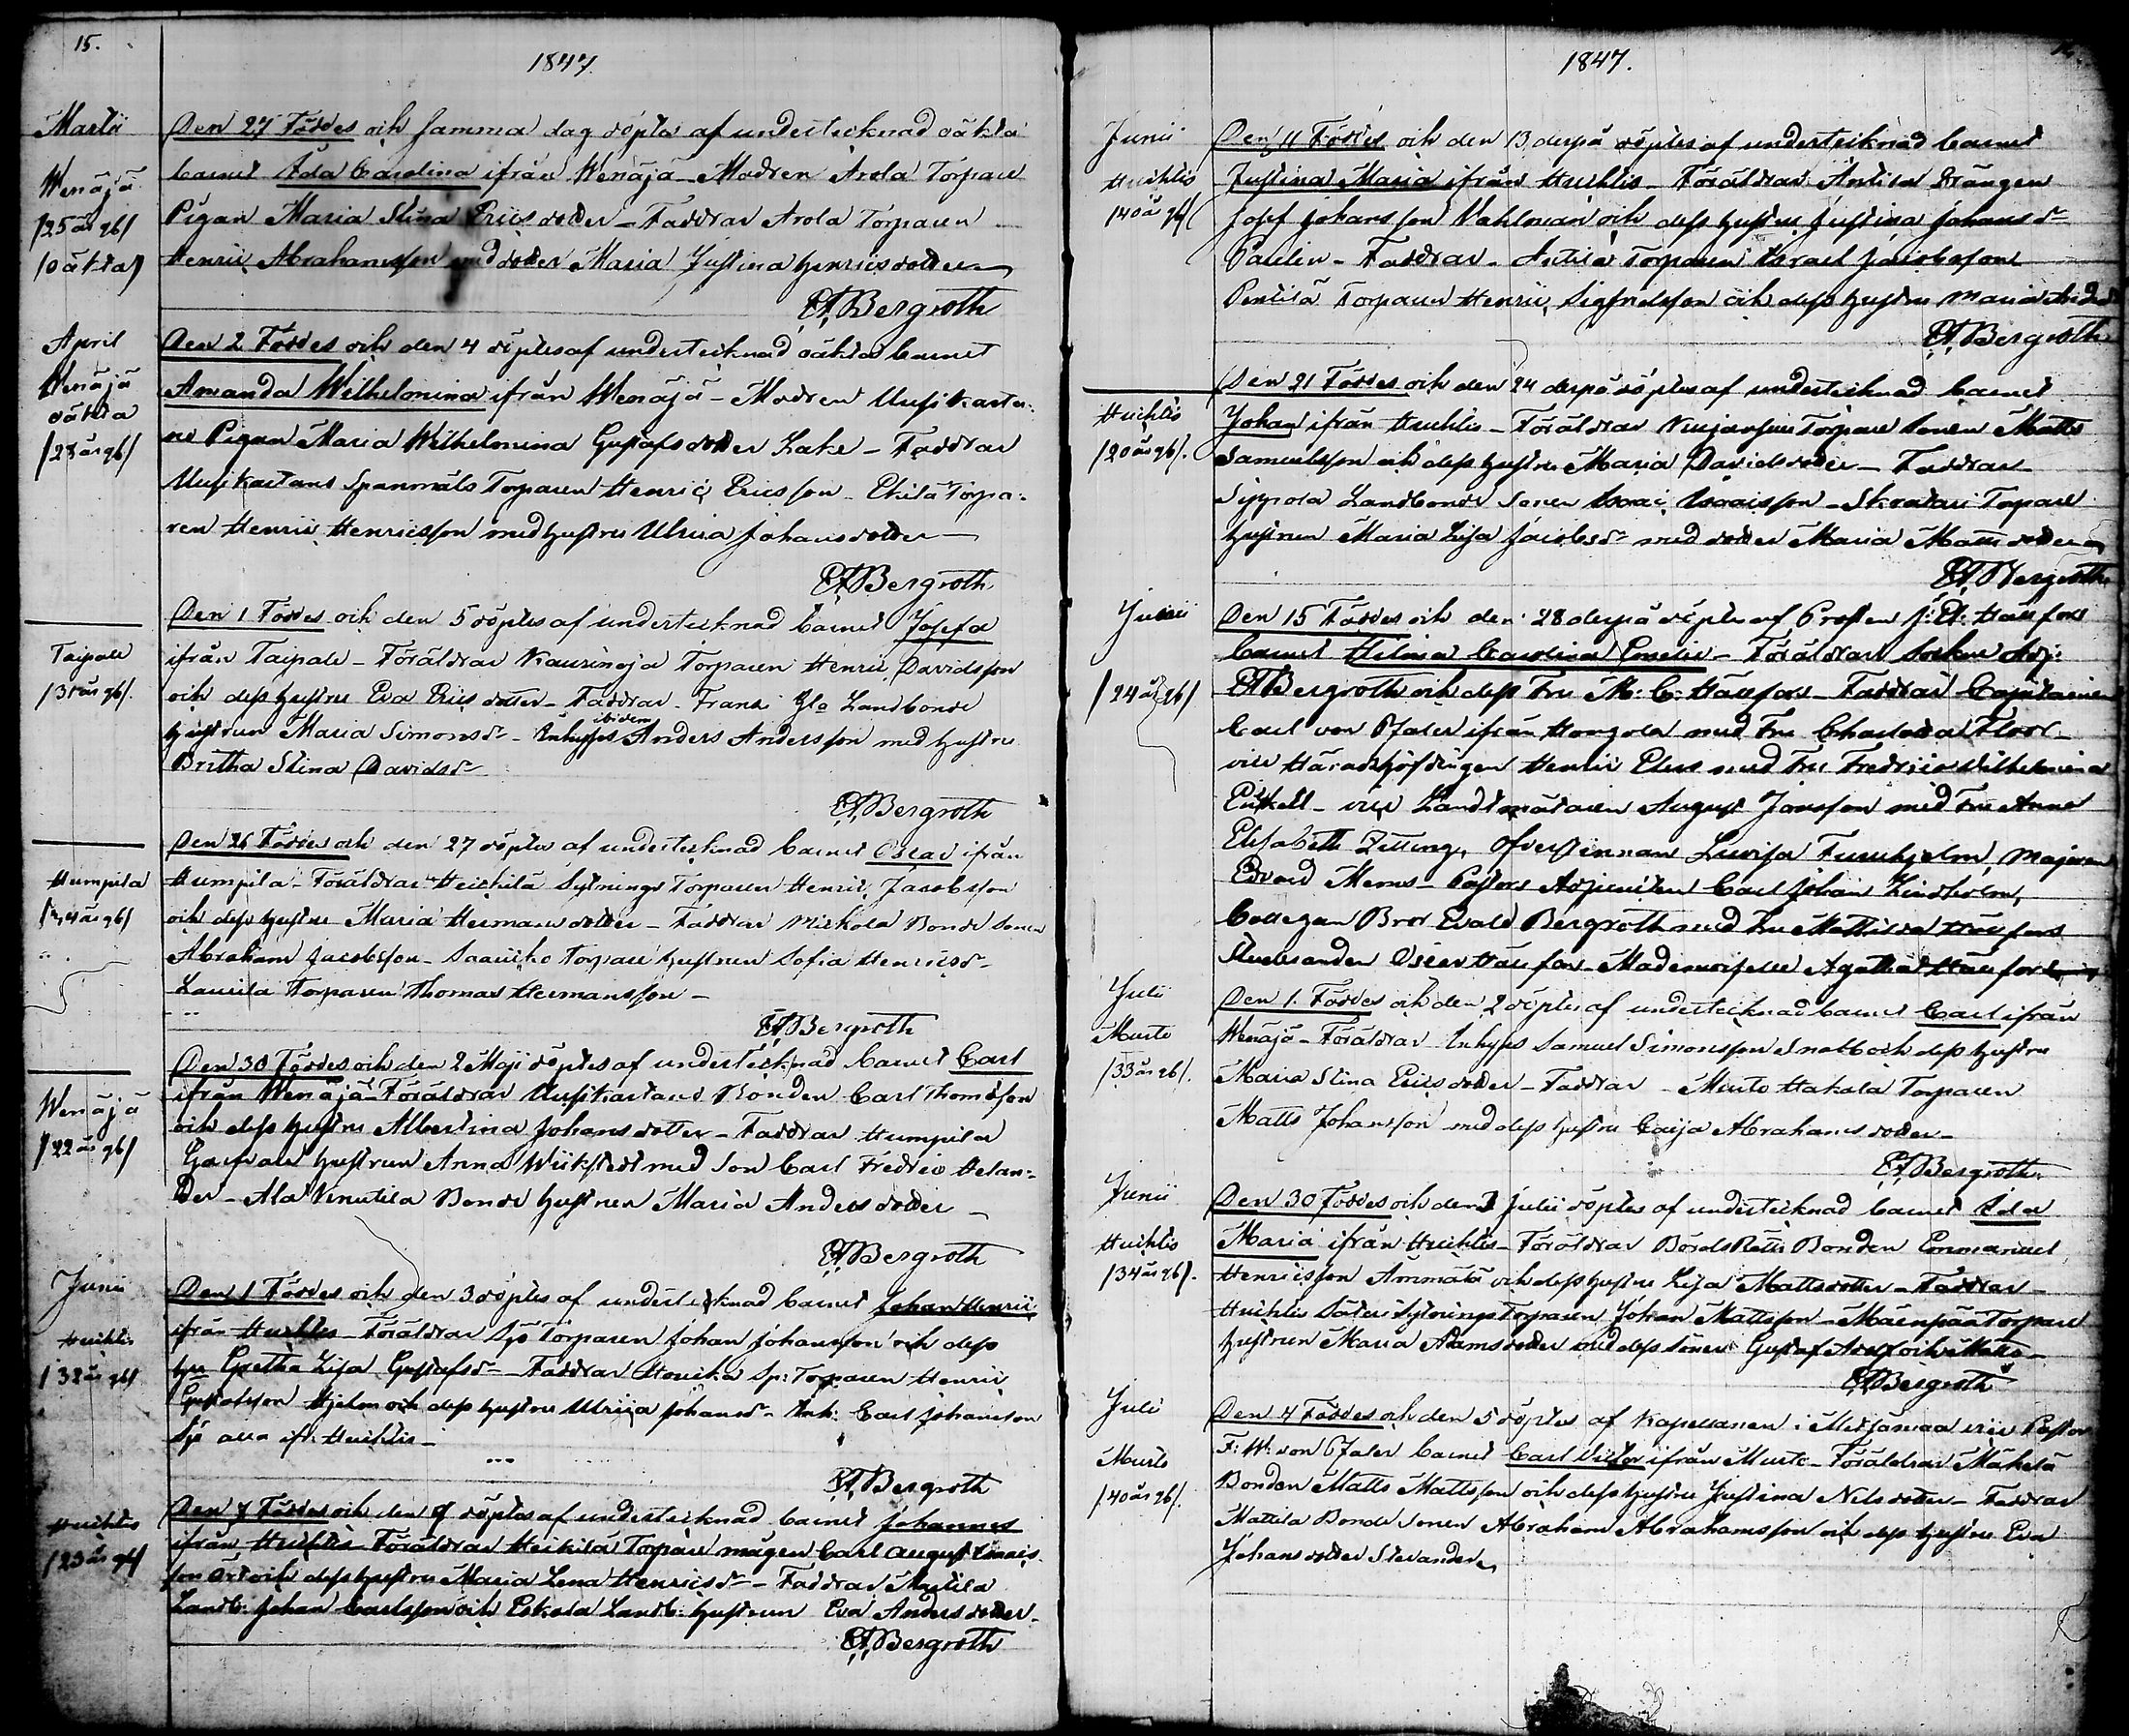 15.
1847.
Martii
Den 27 Föddes och samma dag döptes af undertecknad oäkta
Wenäjä
barnet Ada Carolina ifrån Wenäjä - Modren Arola Torpare
/25 år gl/
Pigan Maria Stina Erics dotter - Faddrar Arola Torparen
/oäkta/
Henric Abrahamsson med dotter Maria Justina Henricsdotter
Bergroth
April
Den 2 Föddes och den 4 döptes af undertecknad oäkta barnet
Wenäjä
Amanda Wilhelmina ifrån Wenäjä - Modren Uusikarta-
oäkta
no Pigan Maria Wilhelmina Gustafsdotter Lake - Faddrar
/28 år gl/
Uusikartano Spanmåls Torparen Henric Ericsson - Ekilä Torpa-
ren Henric Henricsson med hustru Ulrica Johansdotter
Bergroth
Den 1 Föddes och den 5 döptes af undertecknad barnet Josefa
Taipale
ifrån Taipale - Föräldrar Kaurinoja Torparen Henric Davidsson
/31 år gl/.
och dess hustru Eva Erics dotter - Faddrar - Frans Ylö Landbonde
hustrun Maria Simonsdr - Inhyses ibidem Anders Andersson med hustru
Britha Stina Davidsdr
Bergroth
Den 26 Föddes och den 27 döptes af undertecknad barnet Oscar ifrån
Humpila
Humpila - Föräldrar Heickilä Sytnings Torparen Henric Jacobsson
/44 år gl/
och dess hustru Maria Hermans dotter - Faddrar Mickola Bonde Sonen
Abraham Jacobsson - Saaricko Torpare hustrun Sofia Henricsdr
Laurila Torparen Thomas Hermansson -
Bergroth
Den 30 Föddes och den 2 Maji döptes af undertecknad barnet Carl
Wenäjä
ifrån Wenäjä - Föräldrar Uusikartano Bonden Carl Thomasson
/22 år gl/
och dess hustru Albertina Johansdotter - Faddrar Humpila
hustrun Anna Wiikstedt med Son Carl Fredric Helan-
der - Ala Knutila Bonde hustrun Maria Anders dotter
Bergroth
Junii
Den 1 Föddes och den 3 döptes af undertecknad barnet Johan Henric
Huchtis
ifrån Huchtis - Föräldrar Sjö Torparen Johan Johansson och dess
/32 år gl/
hu Gretha Lisa Gustafsdr - Faddrar Sp: Torparen Henric
Gustafsson Hjelm och dess hustru Ulrica Johansdr - Inh. Carl Johansson
Sjö alla ifr. Huchtis -
Bergroth
Den 7 Föddes och den 9 döptes af undertecknad barnet Johannes
Huchtis
ifrån Huchtis - Föräldrar Heikilä Torpare mågen Carl August
/23 år gl/
och dess hustru Maria Lena Henricsdr - Faddrar
Landb. Johan Carlsson och Eskola Landb. hustrun Eva Anders dotter -
Bergroth
1847.
Junii
Den 11 Föddes och den 13 derpå döptes af undertecknad barnet
Huchtis
Justina Maria ifrån Huchtis - Föräldrar Antila Drängen
/40 år gl/
Josef Johansson Vahlman och dess hustru Justina Johansdr
Paulin - Faddrar - Antila Torparen Israel Jacobsson
Pentilä Torparen Henric Sigfridsson och dess hustru Maria
Bergroth
Den 21 Föddes och den 24 derpå döptes af undertecknad barnet
Huchtis
Johan ifrån Huchtis - Föräldrar Torpare Sonen Matts
/20 år gl/.
Samuelsson och dess hustru Maria Davidsdotter - Faddrar
Sippola Landbonde Sonen Isaac Isaacsson - Torpare
hustrun Maria Lisa Jacobsdr med dotter Maria Matts dotter
Bergroth
Junii
Den 15 Föddes och den 28 derpå döptes af Prosten Hällfors
barnet Hilma Carolina Emelie - Föräldrar Sockne Adj:
/24 år gl/
Bergroth och dess Fru M: C: Hällfors - Faddrar Capitainen
Carl von Pfaler ifrån Hongola med Fru Charlotta Floor -
vice Häradshöfdingen Henric med Fru Fredrica Wilhelmina
Enckell - vice Landtmätaren August Jansson med Fru Anna
Elisabeth Zitting, Öfverstinnan Lovisa Furuhjelm, Majoren
Edvard - Pastors Adjuncten Carl Johan Lindholm,
Collegan Bror Evald Bergroth med Fru Mathilda Hällfors
Studeranden Oscar Hällfors - Mademoiselle Agatha Hällfors
Julii
Den 1 Föddes och den 2 döptes af undertecknad barnet Carl ifrån
Murto
Wenäjä - Föräldrar Inhyses Samuel Simonsson Snabb och dess hustru
/33 år gl/.
Maria Stina Erics dotter - Faddrar - Murto Hakala Torparen
Matts Johansson med dess hustru Caisa Abrahams dotter -
Bergroth
Junii
Den 30 Föddes och den 3 Julii döptes af undertecknad barnet Ida
Huchtis
Maria ifrån Huchtis - Föräldrar Bonden Emmanuel
/34 år gl/.
Henricsson Ammälä och dess hustru Lisa Mattsdotter - Faddrar -
Huchtis Säteri Sytnings Torparen Johan Mattsson - Mäenpää Torpare
hustrun Maria Adams dotter med dess söner Gustaf Adolf och Matts -
Bergroth
Julii
Den 4 Föddes och den 5 döptes af Kapellanen i Metsämaa vice Pastor
Murto
F: W: von Pfaler barnet Carl Victor ifrån Murto - Föräldrar Mäkelä
/40 år gl/.
Bonden Matts Mattsson och dess hustru Justina Nils dotter - Faddrar
Mattila Bonde Sonen Abraham Abrahamsson och dess hustru Eva
Johans dotter Stevander